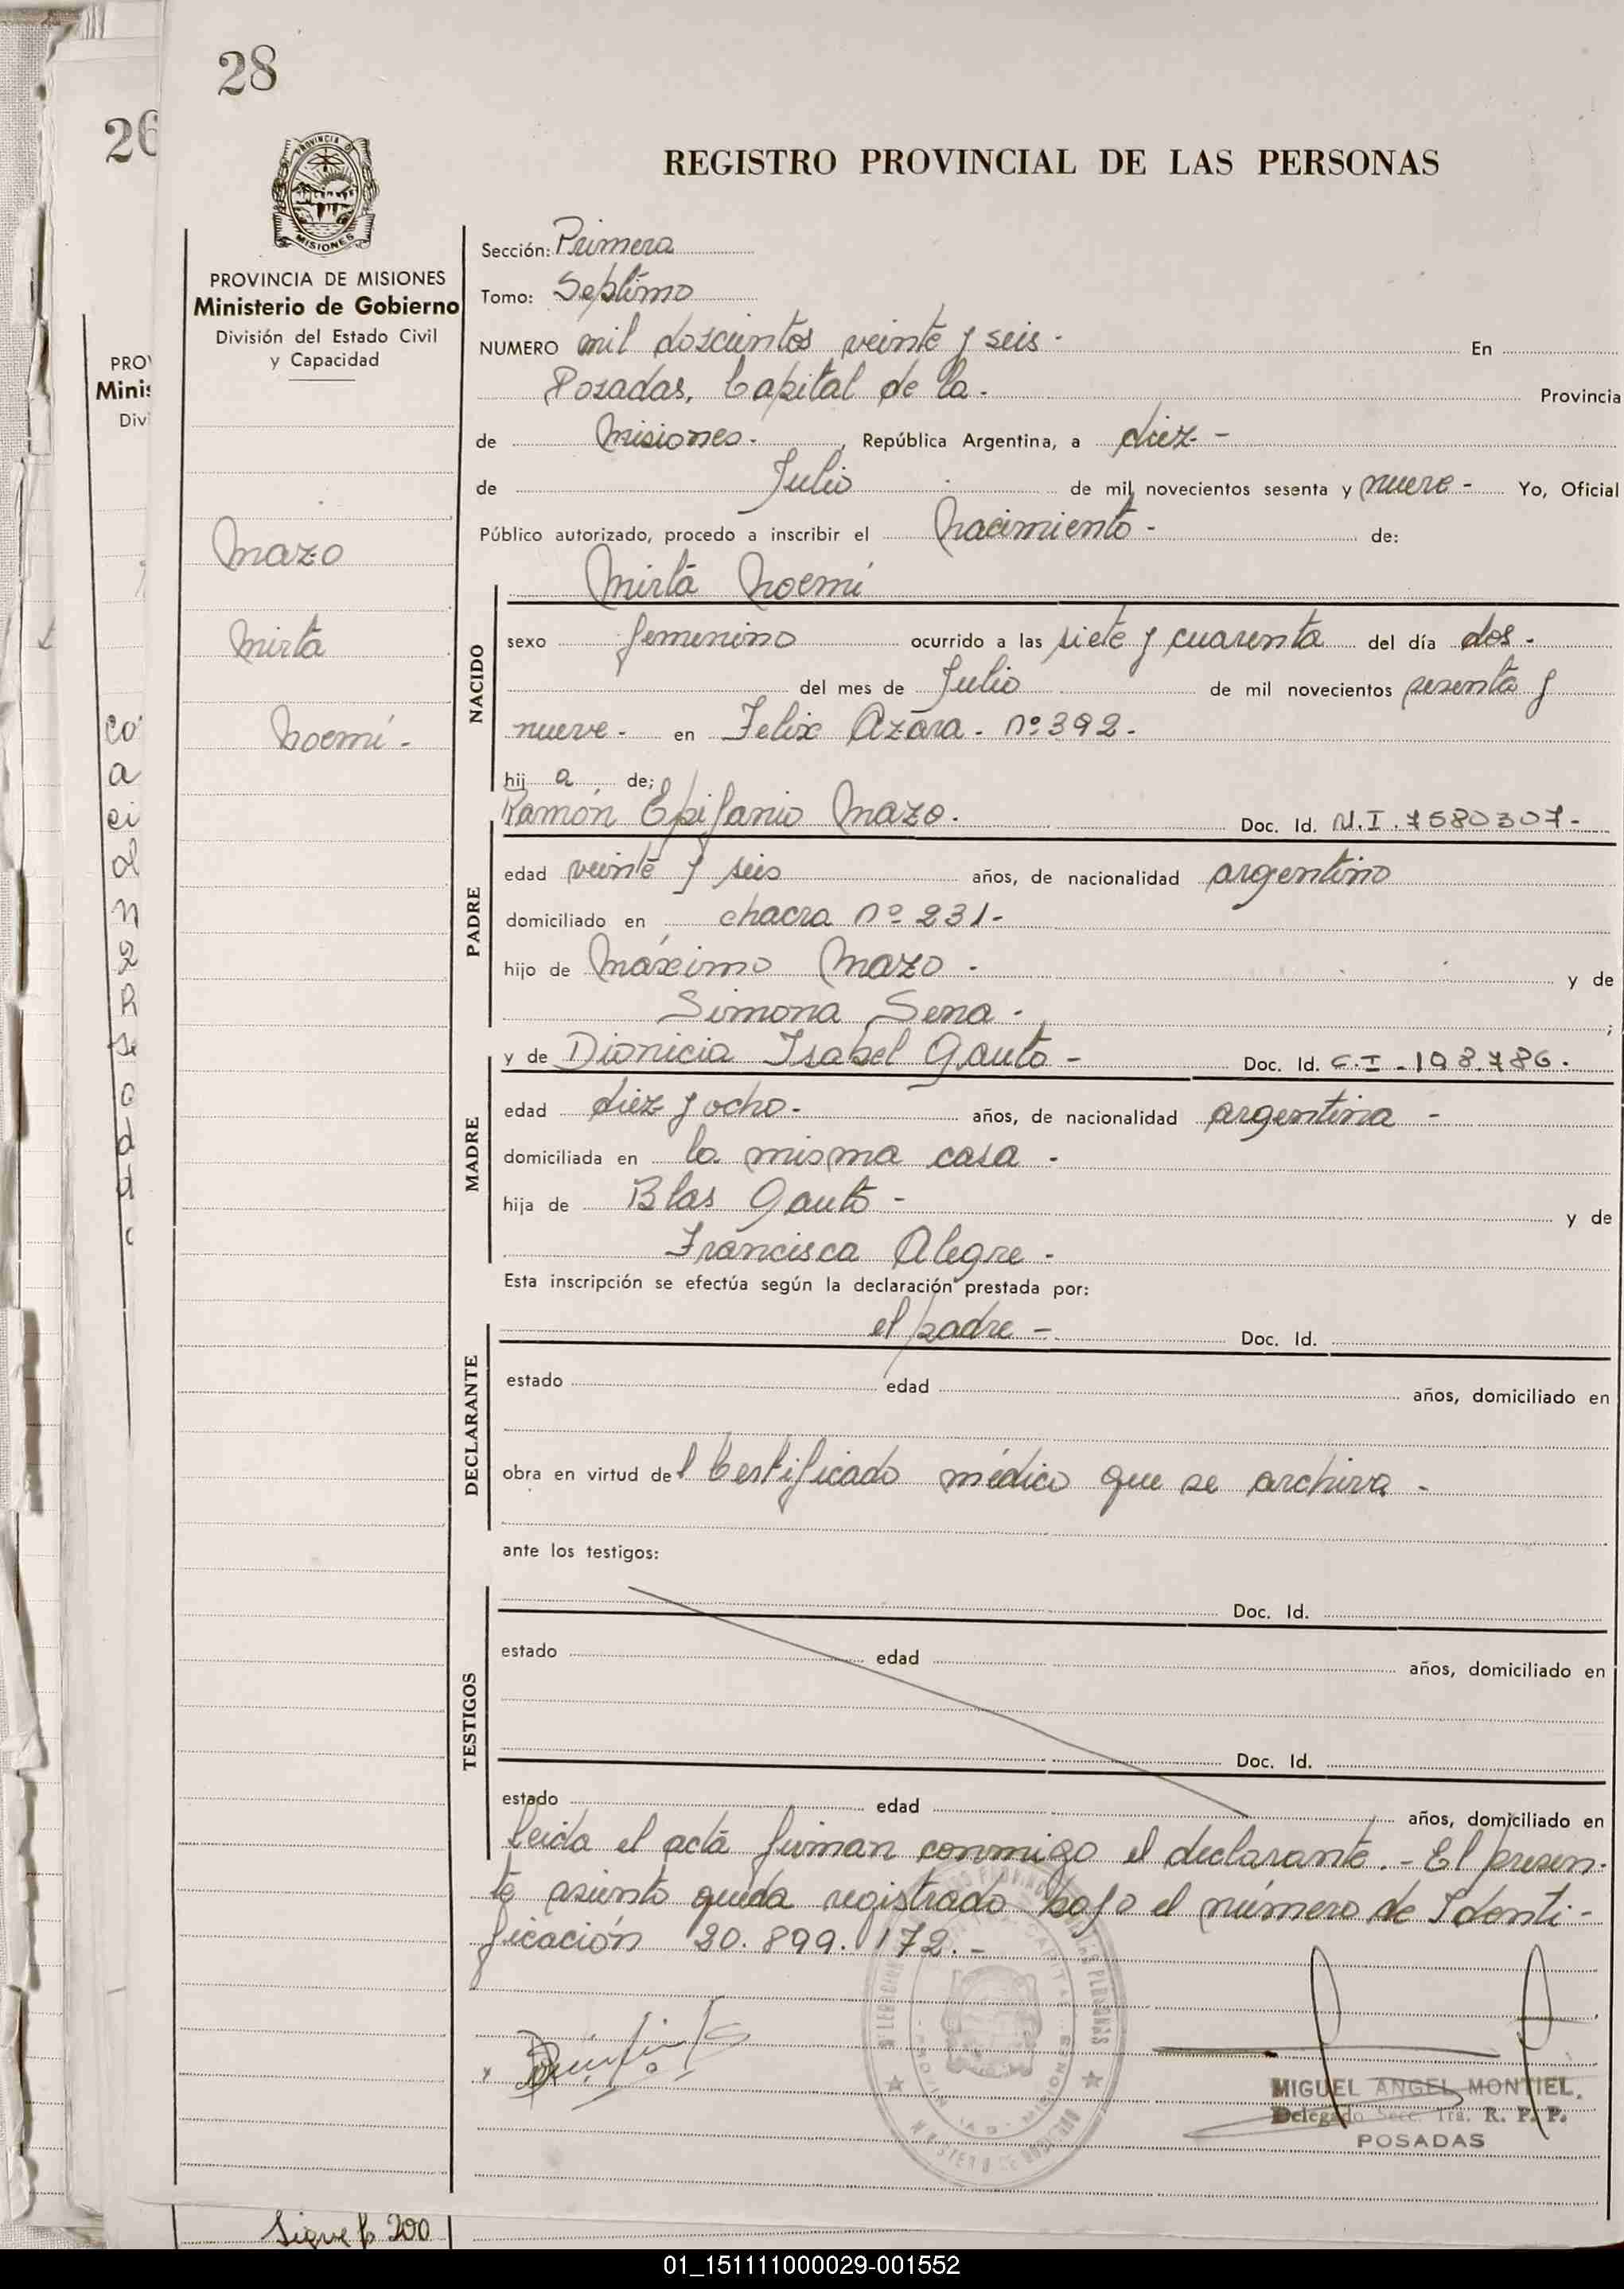 28
26
REGISTRO PROVINCIAL DE LAS PERSONAS
PROVINCIA DE MISIONES
Ministerio de Gobierno
División del Estado Civil
y Capacidad
Mazo
Mirta
Noemí -
Sección: Primera
Tomo: Septimo
NUMERO mil doscientos veinte y seis - En
Posadas, Capital de la - Provincia
de Misiones - , República Argentina, a diez -
de Julio de mil novecientos sesenta y nueve - Yo, Oficial
Público autorizado, procedo a inscribir el Nacimiento - de:
Mirta Noemí
NACIDO
sexo femenino ocurrido a las siete y cuarenta del día dos -
del mes de Julio de mil novecientos sesenta y
nueve - en Felix Azara - nº 392 -
hij a de;
Ramón Epifanio Mazo. Doc. Id. N.I. 7580307-
PADRE
edad veinte y seis años, de nacionalidad argentino
domiciliado en chacra nº 231-
hijo de Máximo Mazo - y de
Simona Sena - ;
y de Dionicia Isabel Gauto - Doc. Id. C.I - 198.786.
MADRE
edad diez y ocho - años, de nacionalidad argentina -
domiciliada en la misma casa -
hija de Blas Gauto - y de
Francisca Alegre -
Esta inscripción se efectúa según la declaración prestada por:
el padre - Doc. Id.
DECLARANTE
estado edad años, domiciliado en
obra en virtud del Certificado médico que se archiva -
ante los testigos:
TESTIGOS
Doc. Id.
estado edad años, domiciliado en
Doc. Id.
estado edad años, domiciliado en
leida el acta firman conmigo el declarante. - El presen-
te asiento queda registrado bajo el número de Identi-
ficación 20.899.172. -
MIGUEL ANGEL MONTIEL.
Delegado Secc. 1ra. R. P. P.
POSADAS
Sigue f. 200
01_151111000029-001552